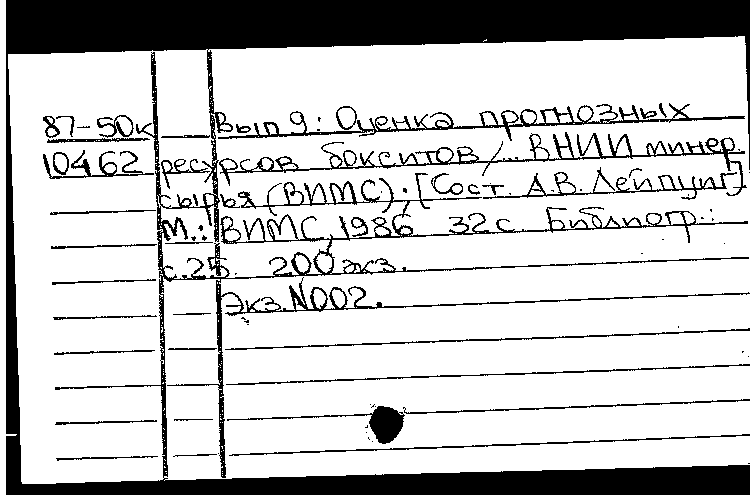 87-50к Вып 9: Оценка прогнозных
10462 ресурсов бокситов /... ВНИИ минер.
сырья (ВИМС); [Сост. А.В. Лейпциг]
М.: ВИМС, 1986 32с. Библиогр.:
с.25. 200 экз.
Экз.N002.